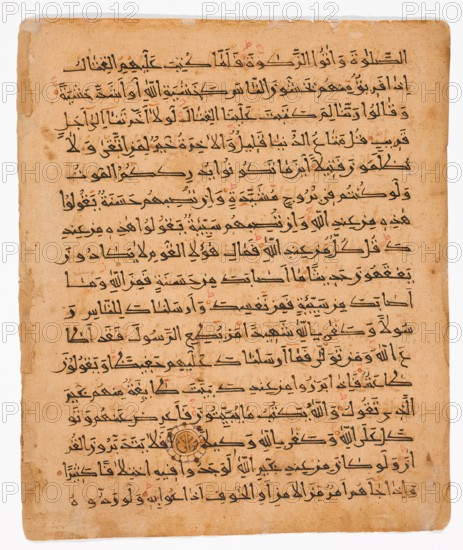 الصلوة واتوا الزكوة فلما كتب عليهم القتال
اذا فريق منهم يخشون الناس كخشية الله او اشد خشية
وقالوا ربنا لم كتبت علينا القتال لولا اخرتنا الى اجل
قريب قل متاع الدنيا قليل والاخرة خير لمن اتقى ولا
تظلمون فتيلا اين ما تكونوا يدرككم الموت
ولو كنتم في بروج مشيدة وان تصبهم حسنة يقولوا
هذه من عند الله وان تصبهم سيئة يقولوا هذه من عند
ك قل كل من عند الله فمال هؤلا القوم لا يكادون
يفقهون حديثا ما اصابك من حسنة فمن الله وما
اصابك من سيئة فمن نفسك وارسلناك للناس ر
سولا وكفى بالله شهيدا من يطع الرسول فقد اطا
ع الله ومن تولى فما ارسلناك عليهم حفيظا ويقولون
طاعة فاذا برزوا من عندك بيت طائفة منهم غير
الذي تقول والله يكتب ما يبيتون فاعرض عنهم وتو
كل على الله وكفى بالله وكيلا افلا يتدبرون القر
ان ولو كان من عند غير الله لوجدوا فيه اختلافا كثيرا
واذا جاهم امر من الامن او الخوف اذاعوا به ولو ردوه